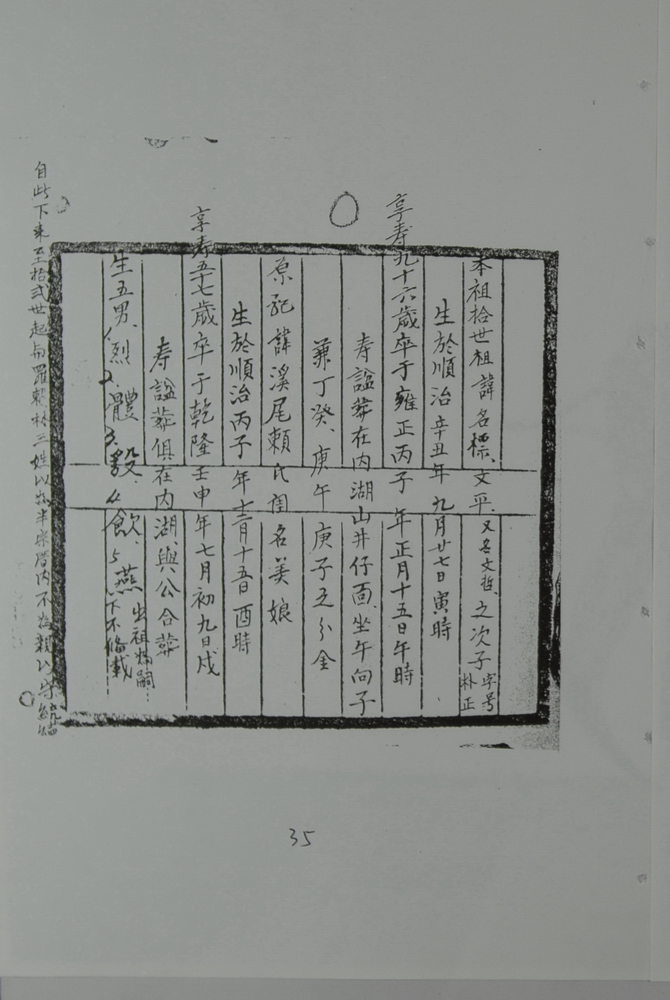 本祖拾世祖諱名標、文平、又名文哲、之次子 字号朴正
生於順治辛丑年九月廿七日寅時
享寿九十六歲卒于雍正丙子年正月十五日午時
寿諡葬在内湖山井仔面、坐午向子
兼丁癸、庚午庚子五分金
原配諱溪尾賴氏閨名美娘
生於順治丙子年十二月十五日酉時
享寿五十七歲卒于乾隆壬申年七月初九日戌
寿諡葬俱在内湖、與公合葬
生五男、1烈、2體、3毅、4飲、5燕 出祖 嗣 下不俻載
自此下来至拾弍世起與羅賴林三姓以 半 内不
35